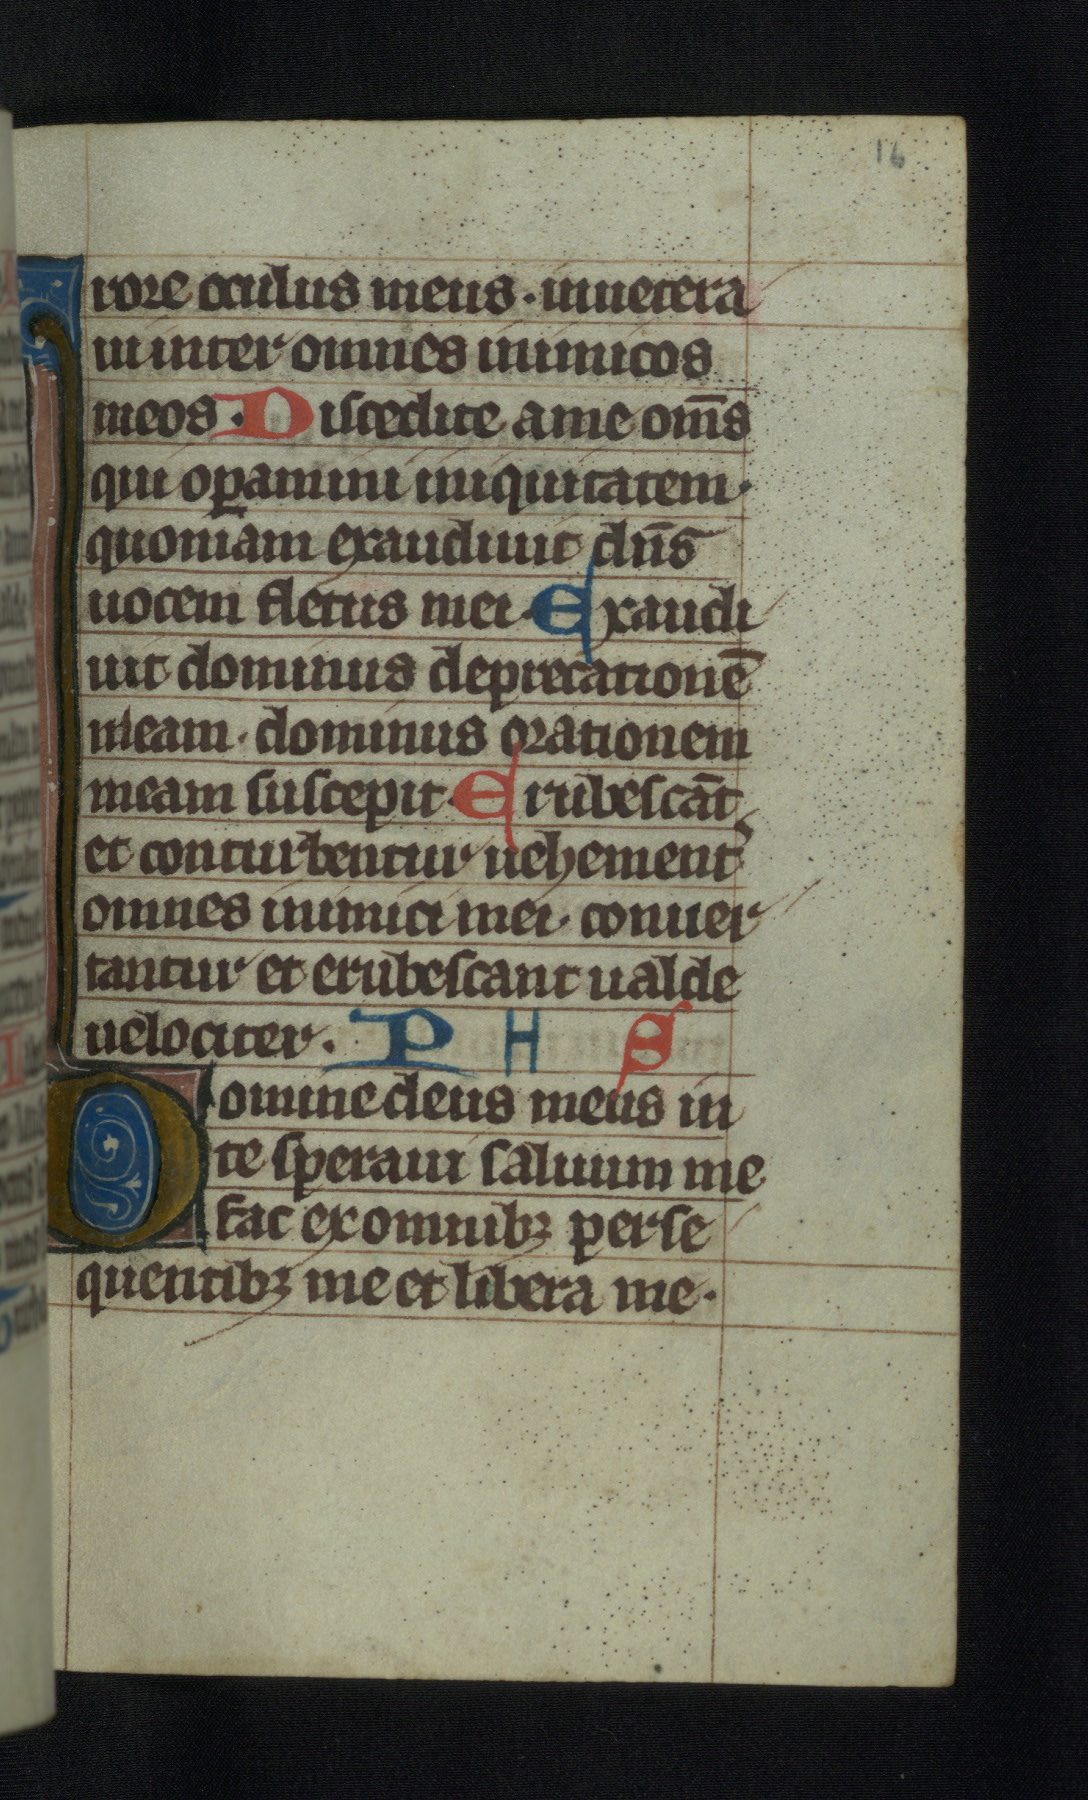 16
rore oculus meus · inuetera
ui inter omnes inimicos
meos · Discedite a me om̄s
qui oꝑamini iniquitatem ·
quoniam exaudiuit dn̄s
uocem fletus mei · Exaudi
uit dominus deprecationē
meam · dominus orationem
meam suscepit · Erubescāt
et conturbentur uehement᷑
omnes inimici mei · conuer
tantur et erubescant ualde
uelociter · P H S
Domine deus meus in
te speraui saluum me
fac ex omnibꝫ perse
quentibꝫ me et libera me ·